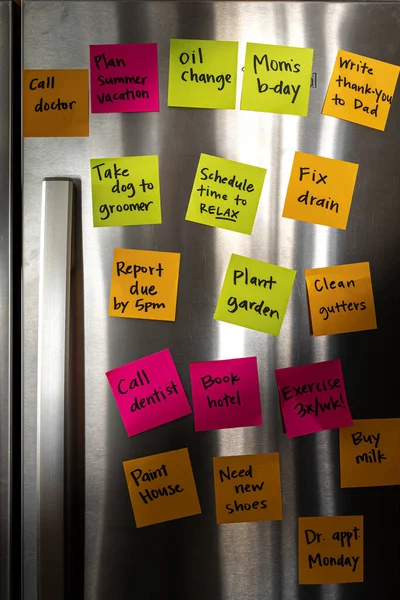 Call
doctor
Plan
Summer
vacation
Oil
change
Mom's
b-day
Write
thank-you
to Dad
Take
dog to
groomer
Schedule
time to
RELAX
Fix
drain
Report
due
by 5pm
Plant
garden
Clean
gutters
Call
dentist
Book
hotel
Exercise
3x/wk!
Buy
milk
Paint
House
Need
new
shoes
Dr. appt.
Monday